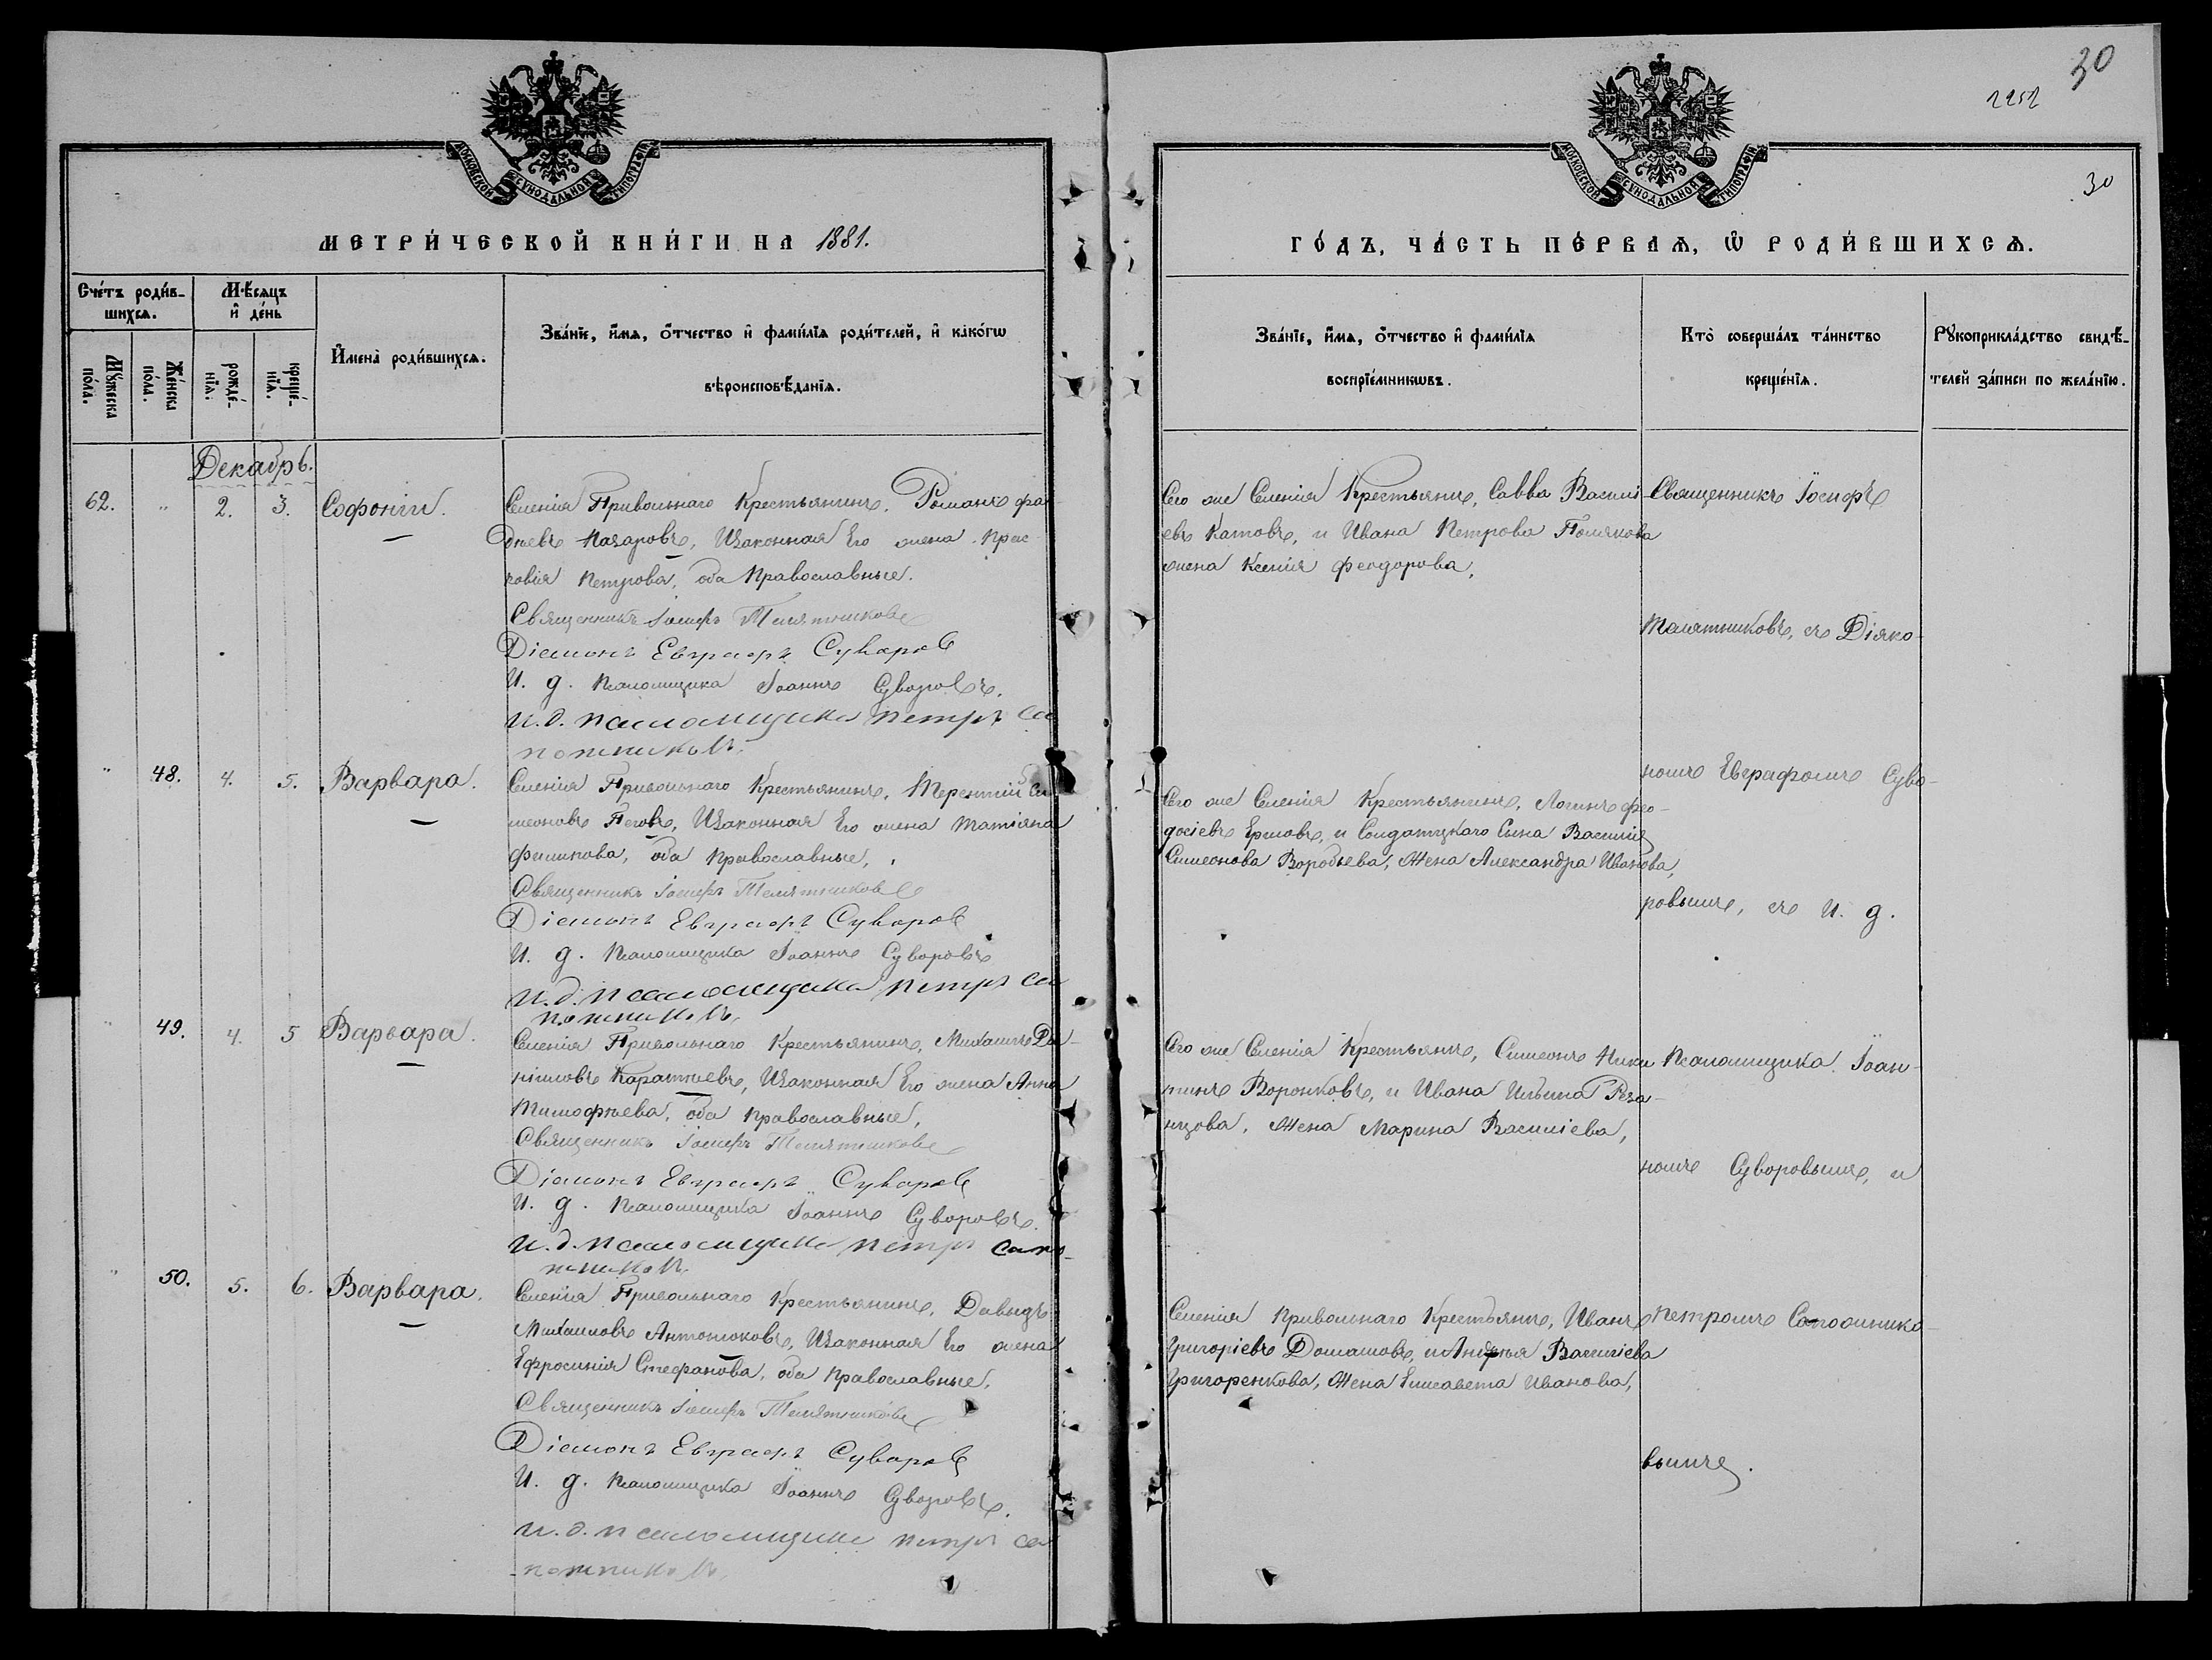 30
1251
30
МОСКОВСКОЙ СѴНОДАЛЬНОЙ ТИПОГРАФІИ
МОСКОВСКОЙ СѴНОДАЛЬНОЙ ТИПОГРАФІИ
МЕТРИ́ЧЕСКОЙ КНИ́ГИ НА 1881.
ГО́ДЪ, ЧА́СТЬ ПЕ́РВАѦ, Ѡ҆ РОДИ́ВШИХСѦ.
Сче́тъ роди́в-
шихсѧ.
Мꙋ́жеска
по́ла.
Же́нска
по́ла.
Мѣ́сѧцъ
и҆ де́нь
рожде́-
нїѧ.
креще́-
нїѧ.
И҆мена̀ роди́вшихсѧ.
Зва́нїе, и҆́мѧ, ѻ҆́тчество и҆ фами́лїѧ роди́телей, и҆ како́гѡ
вѣроисповѣ́данїѧ.
Зва́нїе, и҆́мѧ, ѻ҆́тчество и҆ фами́лїѧ
воспрїе́мникѡвъ.
Кто̀ соверша́лъ та́инство
креще́нїѧ.
Рꙋкоприкла́дство свидѣ́-
телей за́писи по жела́нїю.
Декабрь.
62. " 2. 3. Софоній.
Селенія Привольнаго Крестьянинъ, Романъ Фад
дѣевъ Назаровъ, И законная Его жена Прас
ковія Петрова, оба Православные.
Священникъ Іосифъ Телятниковъ
Діаконъ Евграфъ Суворов
И. д. Псаломщика Іоаннъ Суворовъ.
и. д. псаломщика Петръ Са
пожниковъ.
Сего же Селенія Крестьяне, Савва Васили-
евъ Катовъ, и Ивана Петрова Полякова
жена Ксенія Феодорова.
Священникъ Іосифъ
Телятниковъ, съ Діако-
номъ Евграфомъ Суво-
ровымъ, съ И. д.
Псаломщика Іоан-
номъ Суворовымъ, и
Петромъ Сапожнико-
вымъ.
" 48. 4. 5. Варвара.
Селенія Привольнаго Крестьянинъ, Терентій Си
меоновъ Пеговъ, И законная Его жена Татіана
Филипова, оба Православные,
Священникъ Іосифъ Телятников
Діаконъ Евграфъ Суворов
И. д. Псаломщика Іоаннъ Суворовъ
и. д. псаломщика Петръ Са
пожниковъ.
Сего же Селенія Крестьянинъ, Логинъ Фео-
досіевъ Ершовъ, и Солдатскаго Сына Василія
Симеонова Воробьева, Жена Александра Иванова,
" 49. 4. 5 Варвара.
Селенія Привольнаго Крестьянинъ, Михаилъ Да-
ніиловъ Каратаевъ, И законная Его жена Анна
Тимофѣева, оба Православные,
Священникъ Іосифъ Телятниковъ
Діаконъ Евграфъ Суворов
И. д. Псаломщика Іоаннъ Суворовъ.
и. д. псаломщика Петръ Сапо-
жниковъ.
Сего же Селенія Крестьяне, Симеонъ Ники
тинъ Воронковъ, и Ивана Ильина Ряза-
нцова, Жена Марина Василіева,
" 50. 5. 6. Варвара.
Селенія Привольнаго Крестьянинъ, Давыдъ
Михаиловъ Антоноковъ, И законная Его жена
Ефросинія Стефанова, оба Православные,
Священникъ Іосифъ Телятниковъ
Діаконъ Евграфъ Суворов
И. д. Псаломщика Іоаннъ Суворовъ.
и. д. псаломщика Петръ Са
пожниковъ.
Селенія Привольнаго Крестьяне, Иванъ
Григоріевъ Домашовъ, и Андрея Василіева
Григоренкова, Жена Елисавета Иванова,